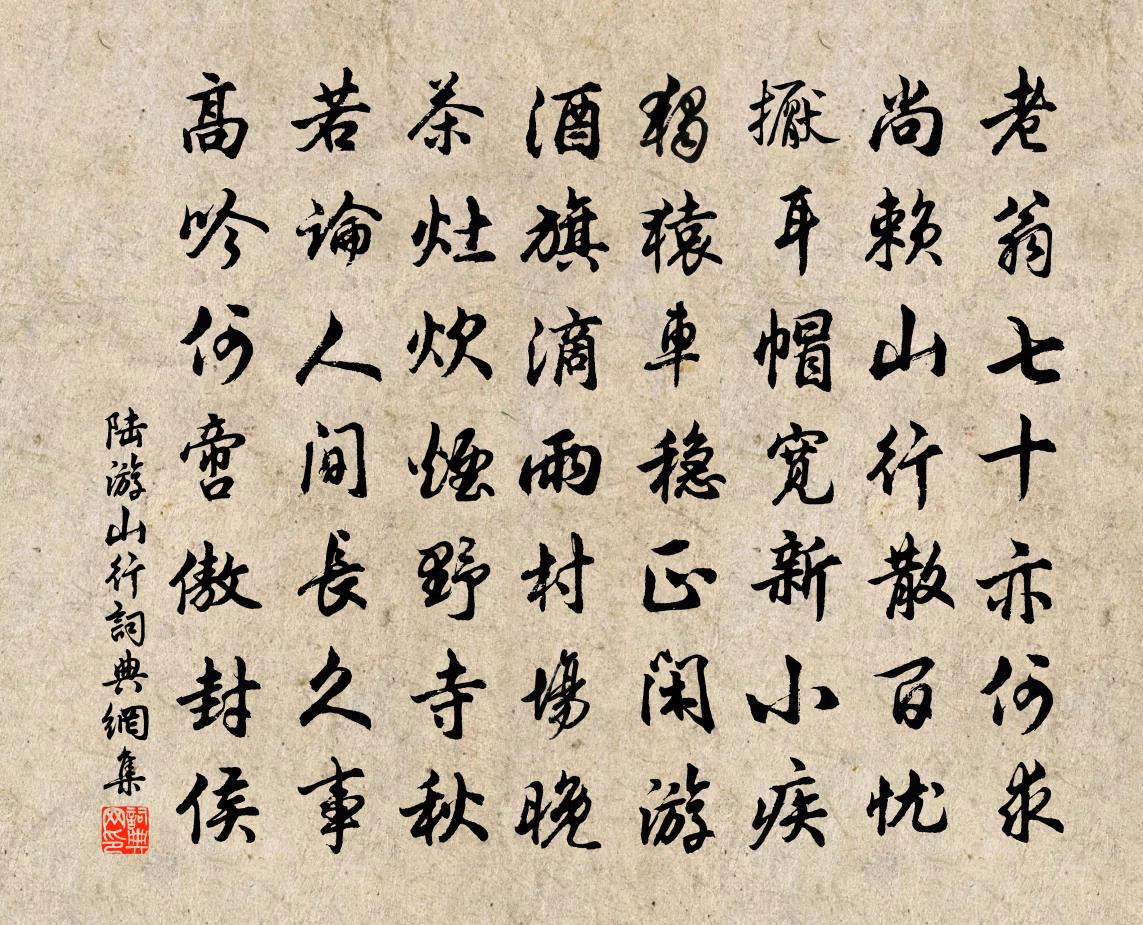 老翁七十亦何求
尚赖山行散百忧
擫耳帽寬新小疾
獨猿車稳正閑游
酒旗滴雨村場晚
茶灶炊煙野寺秋
若論人間長久事
高吟何啻傲封侯
陆游山行詞典網集
詞典网印